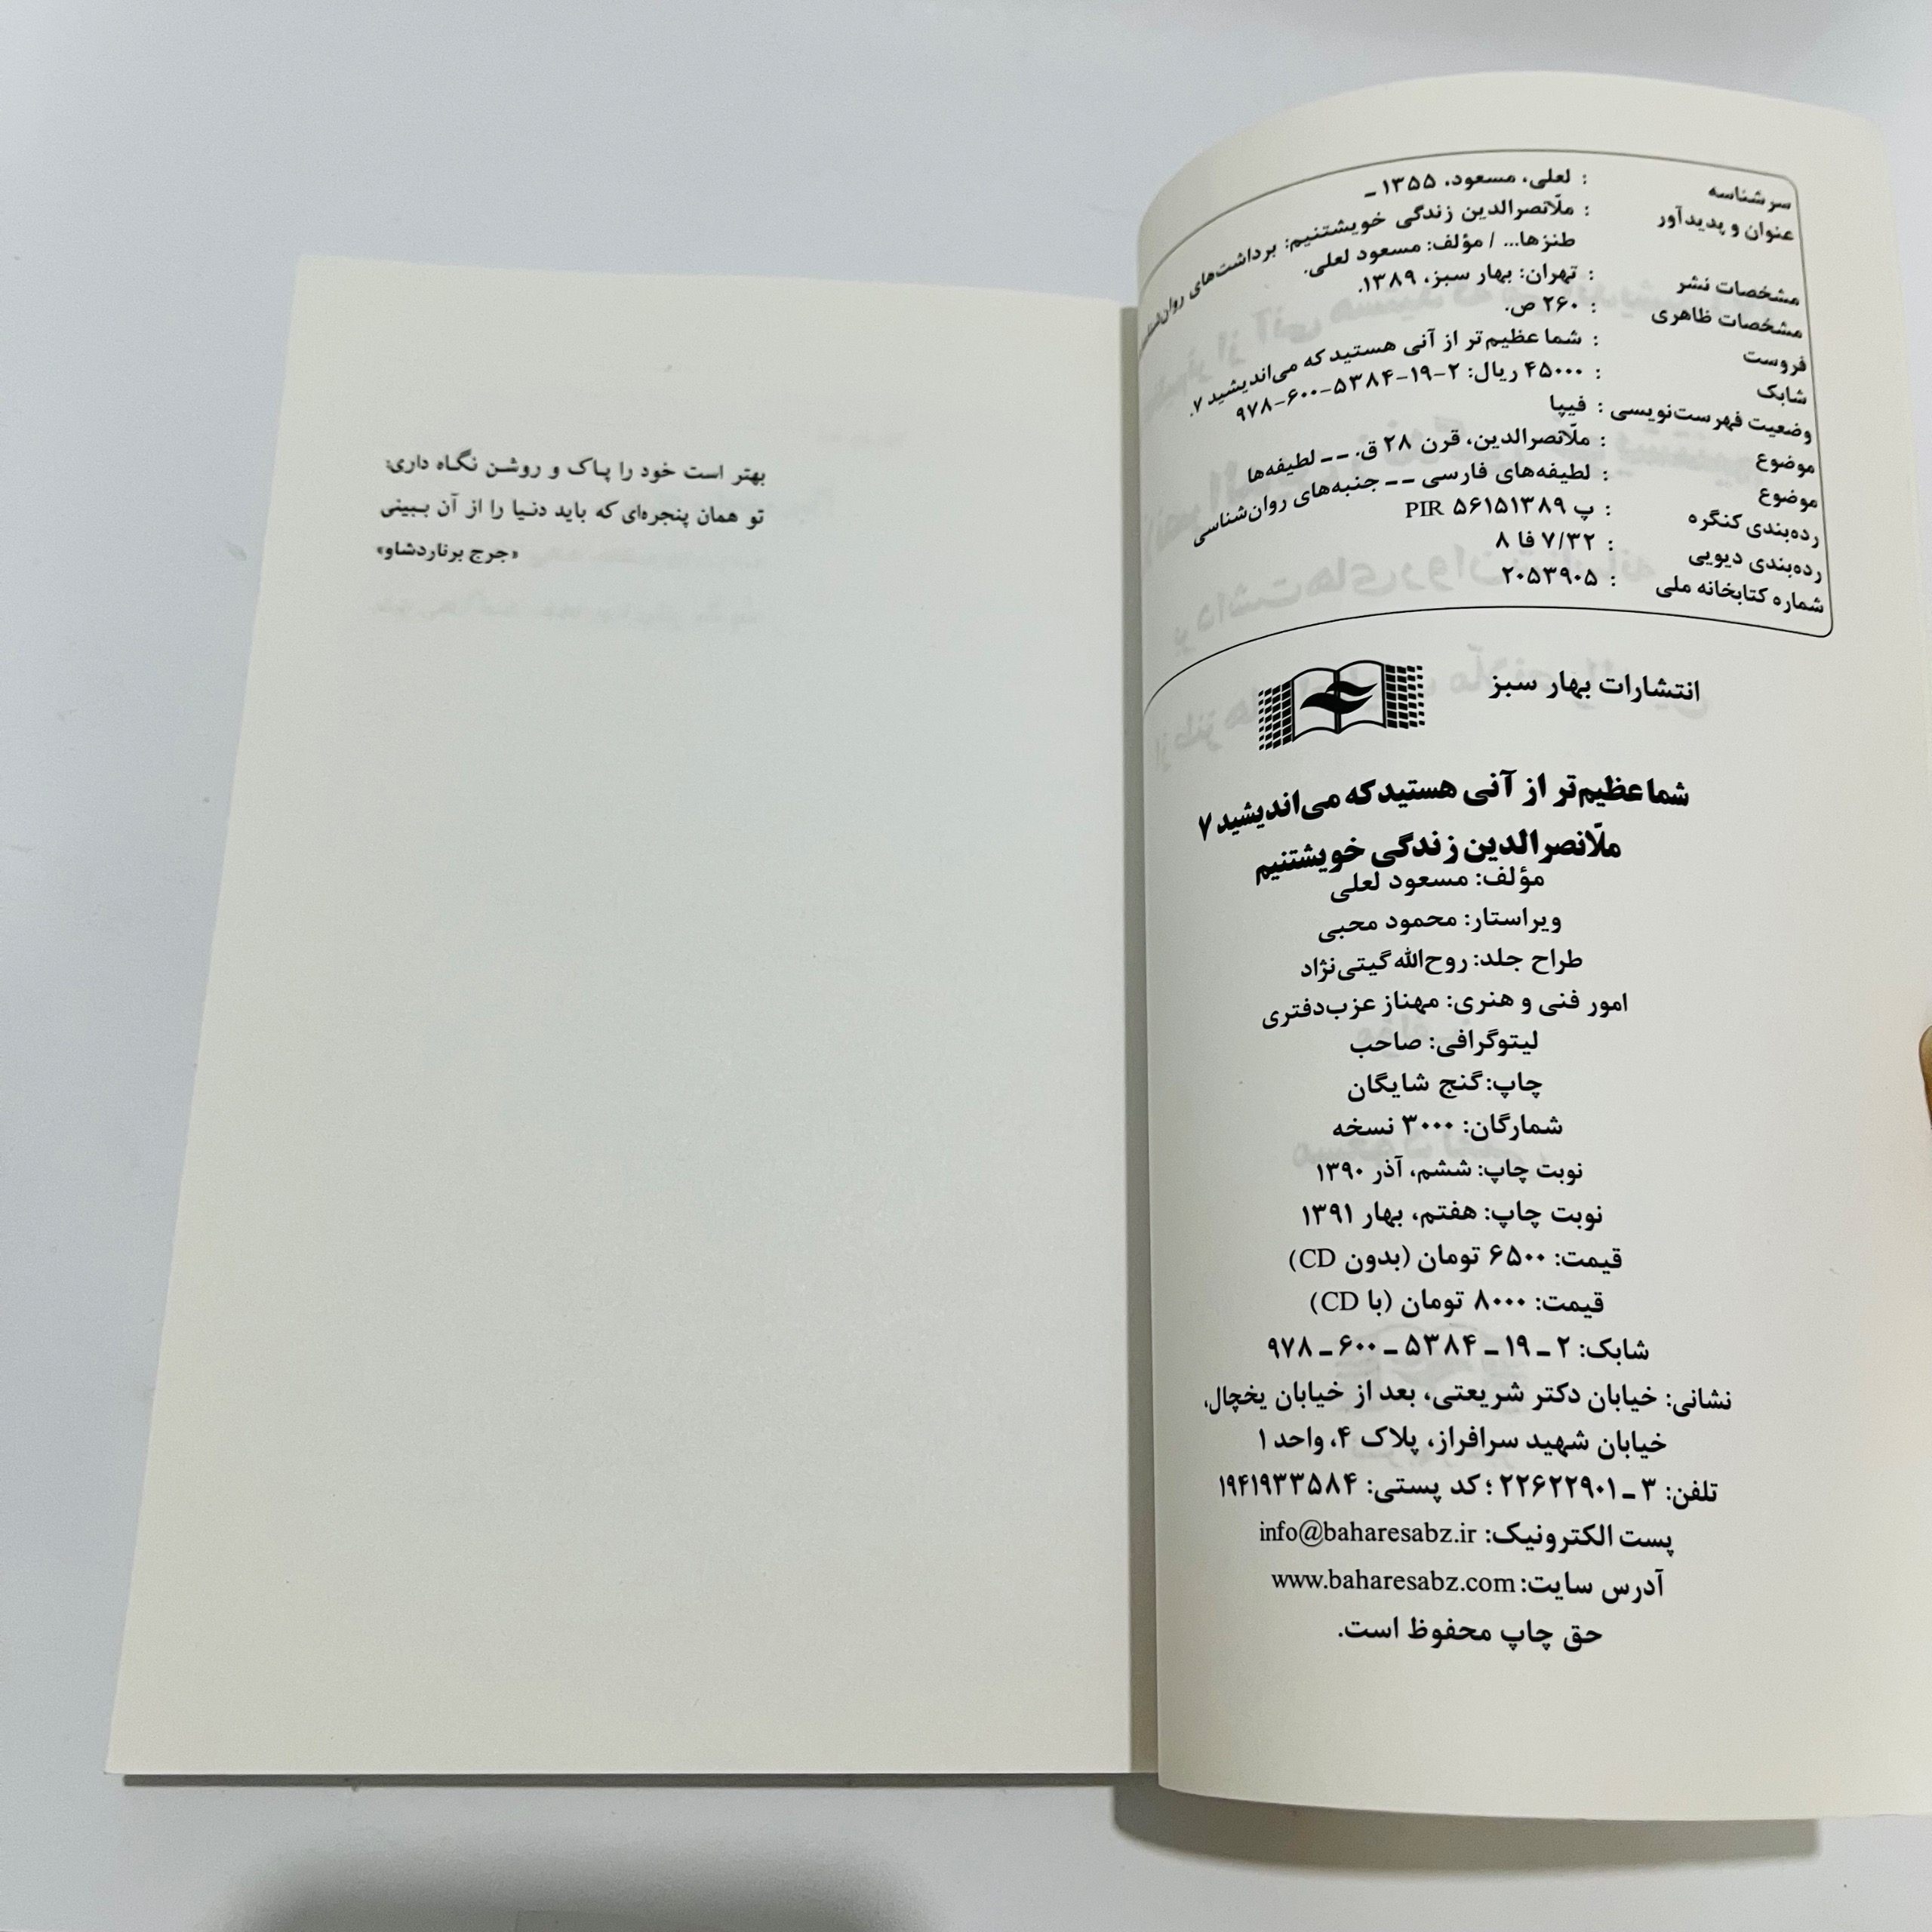 سرشناسه : لعلی، مسعود، ۱۳۵۵ ـ
عنوان و پدیدآور : ملّانصرالدین زندگی خویشتنیم: برداشت‌های
طنزها... / مؤلف: مسعود لعلی.
مشخصات نشر : تهران: بهار سبز، ۱۳۸۹.
مشخصات ظاهری : ۲۶۰ ص.
فروست : شما عظیم‌تر از آنی هستید که می‌اندیشید ۷.
شابک : ۴۵۰۰۰ ریال: ۲-۱۹-۵۳۸۴-۶۰۰-۹۷۸
وضعیت فهرست‌نویسی : فیپا
موضوع : ملّانصرالدین، قرن ۲۸ ق. ـ ـ لطیفه‌ها
موضوع : لطیفه‌های فارسی ـ ـ جنبه‌های روان‌شناسی
رده‌بندی کنگره : پ ۵۶۱۵۱۳۸۹ PIR
رده‌بندی دیویی : ۷/۳۲ فا ۸
شماره کتابخانه ملی : ۲۰۵۳۹۰۵
انتشارات بهار سبز
شما عظیم‌تر از آنی هستید که می‌اندیشید ۷
ملّانصرالدین زندگی خویشتنیم
مؤلف: مسعود لعلی
ویراستار: محمود محبی
طراح جلد: روح‌الله گیتی‌نژاد
امور فنی و هنری: مهناز عزب‌دفتری
لیتوگرافی: صاحب
چاپ: گنج شایگان
شمارگان: ۳۰۰۰ نسخه
نوبت چاپ: ششم، آذر ۱۳۹۰
نوبت چاپ: هفتم، بهار ۱۳۹۱
قیمت: ۶۵۰۰ تومان (بدون CD)
قیمت: ۸۰۰۰ تومان (با CD)
شابک: ۲ ـ ۱۹ ـ ۵۳۸۴ ـ ۶۰۰ ـ ۹۷۸
نشانی: خیابان دکتر شریعتی، بعد از خیابان یخچال،
خیابان شهید سرافراز، پلاک ۴، واحد ۱
تلفن: ۳ ـ ۲۲۶۲۲۹۰۱؛ کد پستی: ۱۹۴۱۹۳۳۵۸۴
پست الکترونیک: info@baharesabz.ir
آدرس سایت: www.baharesabz.com
حق چاپ محفوظ است.
بهتر است خود را پاک و روشن نگاه داری:
تو همان پنجره‌ای که باید دنیا را از آن ببینی
«جرج برناردشاو»